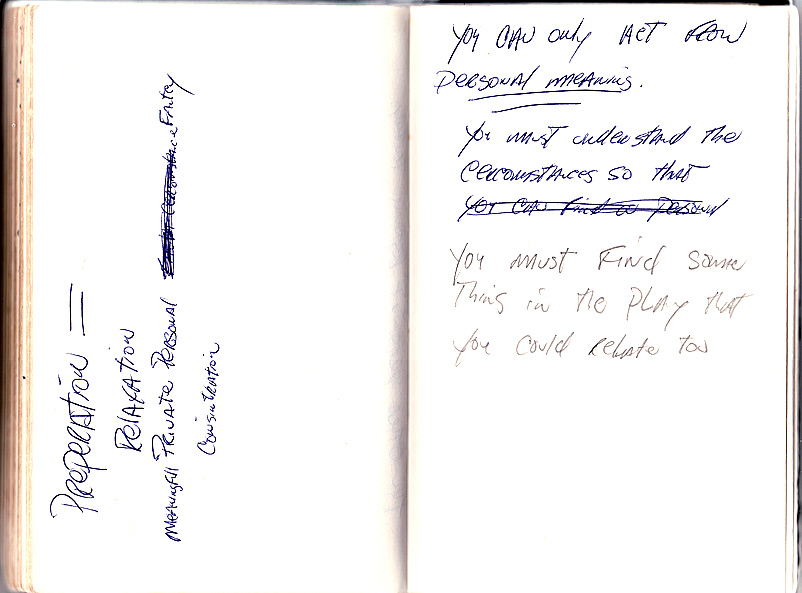 PREPERATION
RELAXATION
MEANINGFUll PRIVATE PERSONAL
CONSINTRATION
You CAN only ACT FROM
PERSONAL MEANING.
You must understand the
CERCOMSTANCES so that
You CAN Find a Personal
You must Find some
Thing in the PLAY that
you could RELATE TOO